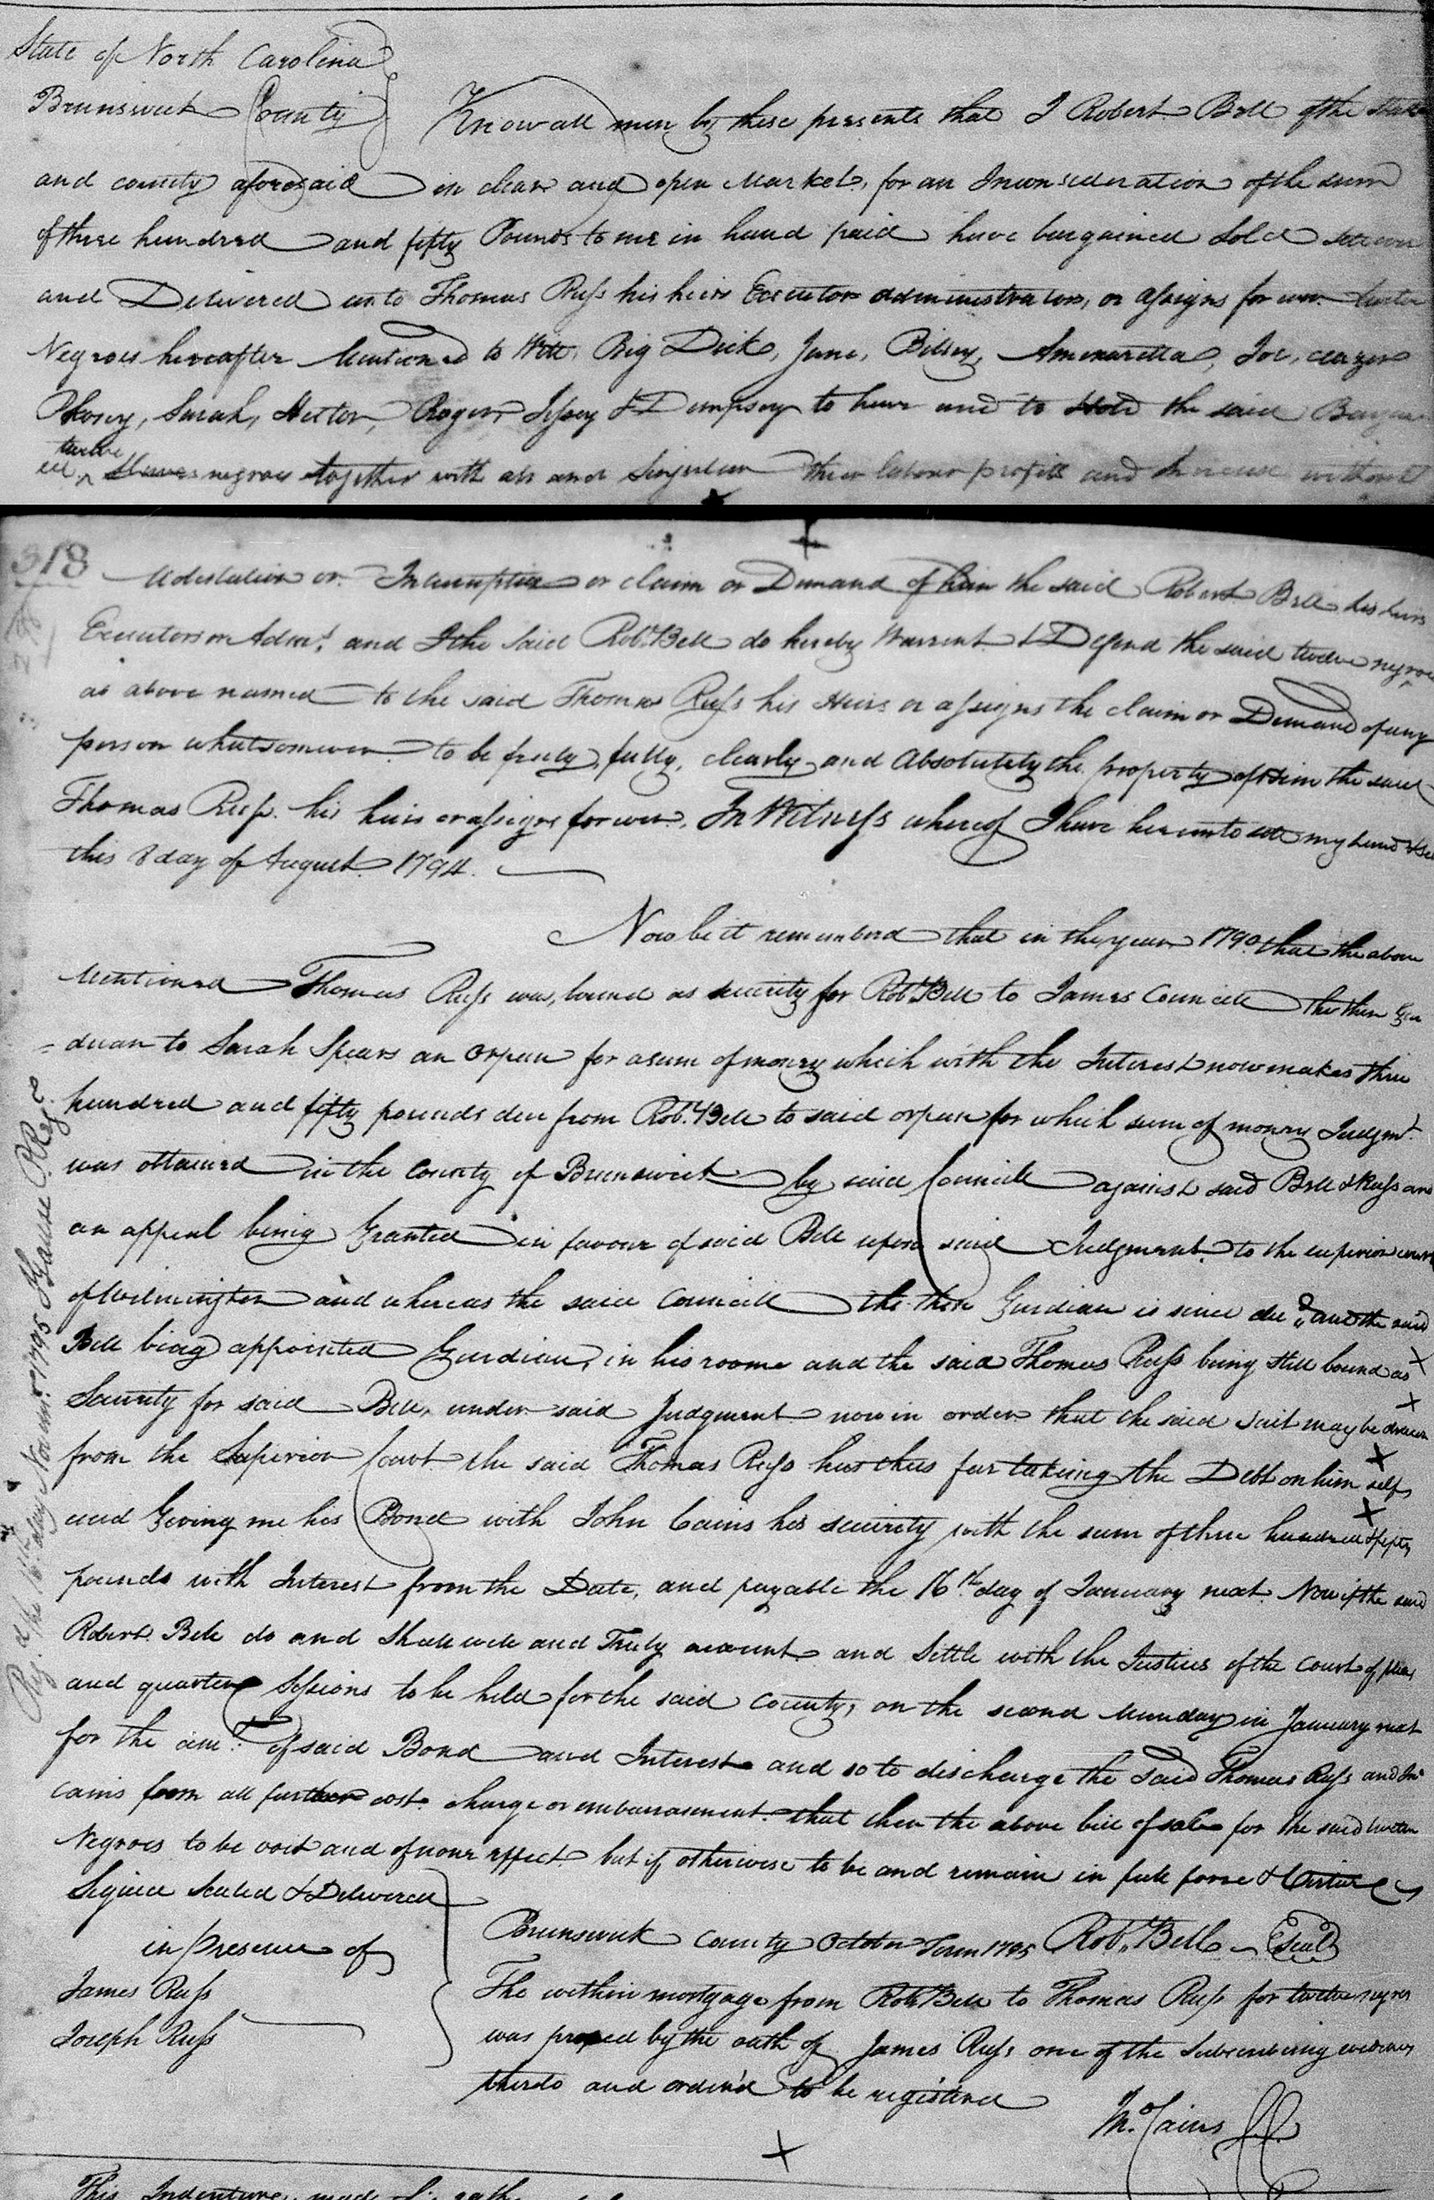 State of North Carolina
Brunswick County Know all men by these presents that I Robert Bell of the State
and county aforesaid in clear and open Market, for an Inconsideration of the sum
of three hundred and fifty Pounds to me in hand paid have bargained Sold
and Delivered unto Thomas Russ his heirs Executor administrators, or assigns for ever twelve
Negroes hereafter Mentioned to Witt, Big Dick, Jane, Bilsey, Amenaretta, Joe,
Phosey, Sarah, Hector, Roger, Jessey & Dempsey to have and to Hold the said
twelve
negroes together with all and Singular their labour profits and Increase without
318 Molestation or Interruption or claim or Demand of him the said Robert Bell his heirs
Executors or Admt. and I the Said Robt. Bell do hereby Warrent & Defend the said twelve negroes
as above named to the said Thomas Russ his Heirs or assigns the claim or Demand of any
person whatsomever to be freely, fully, clearly and Absolutely the property of him the said
Thomas Russ his heirs or assigns forever. In Witness whereof I have hereunto sett my hand & Seal
this 8 day of August 1794.
Now be it remembred that in the year 1790 that the above
Mentioned Thomas Russ was, bound as security for Robt. Bell to James Councill the then Gua
=dian to Sarah Spears an orpan for a sum of money which with the Interest now makes three
hundred and fifty pounds due from Robt. Bell to said orpan for which sum of money Judgmt.
was ottained in the County of Brunswick by said Councill against said Bell & Russ and
an appeal being Granted in favour of said Bell upon said Judgment to the superior court
of Wilmington and whereas the said Councill the then Gurdian is since decd. and the said
Bell being appointed Gurdian, in his roome and the said Thomas Russ being still bound as
Security for said Bell, under said Judgment now in order that the said suit may be drawn
from the Superior Court the said Thomas Russ has thus far taking the Debt on him self
and Giveing me his Bond with John Cains his security with the sum of three hundred & fifty
pounds with Interest from the Date, and payable the 16th. day of January next. Now if the said
Robert Bell do and Shall well and Truly account and Settle with the Justices of the Court of pleas
and quarter Sessions to be held for the said County, on the second Munday in January next
for the amt. of said Bond and Interest and so to discharge the Said Thomas Russ and Jno
Cains from all further cost charge or embarrasment that then the above bill of sale for the said twelve
Negroes to be void and of none effect but if otherwise to be and remain in full force & Virtue
Signed Sealed & Delivered
in presence of
James Russ
Joseph Russ
Brunswick County October Term 1795 Robt. Bell Seal
The within mortgage from Robt Bell to Thomas Russ for twelve negroes
was proved by the oath of James Russ one of the Subscribing evidences
thereto and ordered to be registered
Jno. Cains
Reg. d. the 16th. day Novemr. 1795 Gause P. Regr.
This Indenture, made